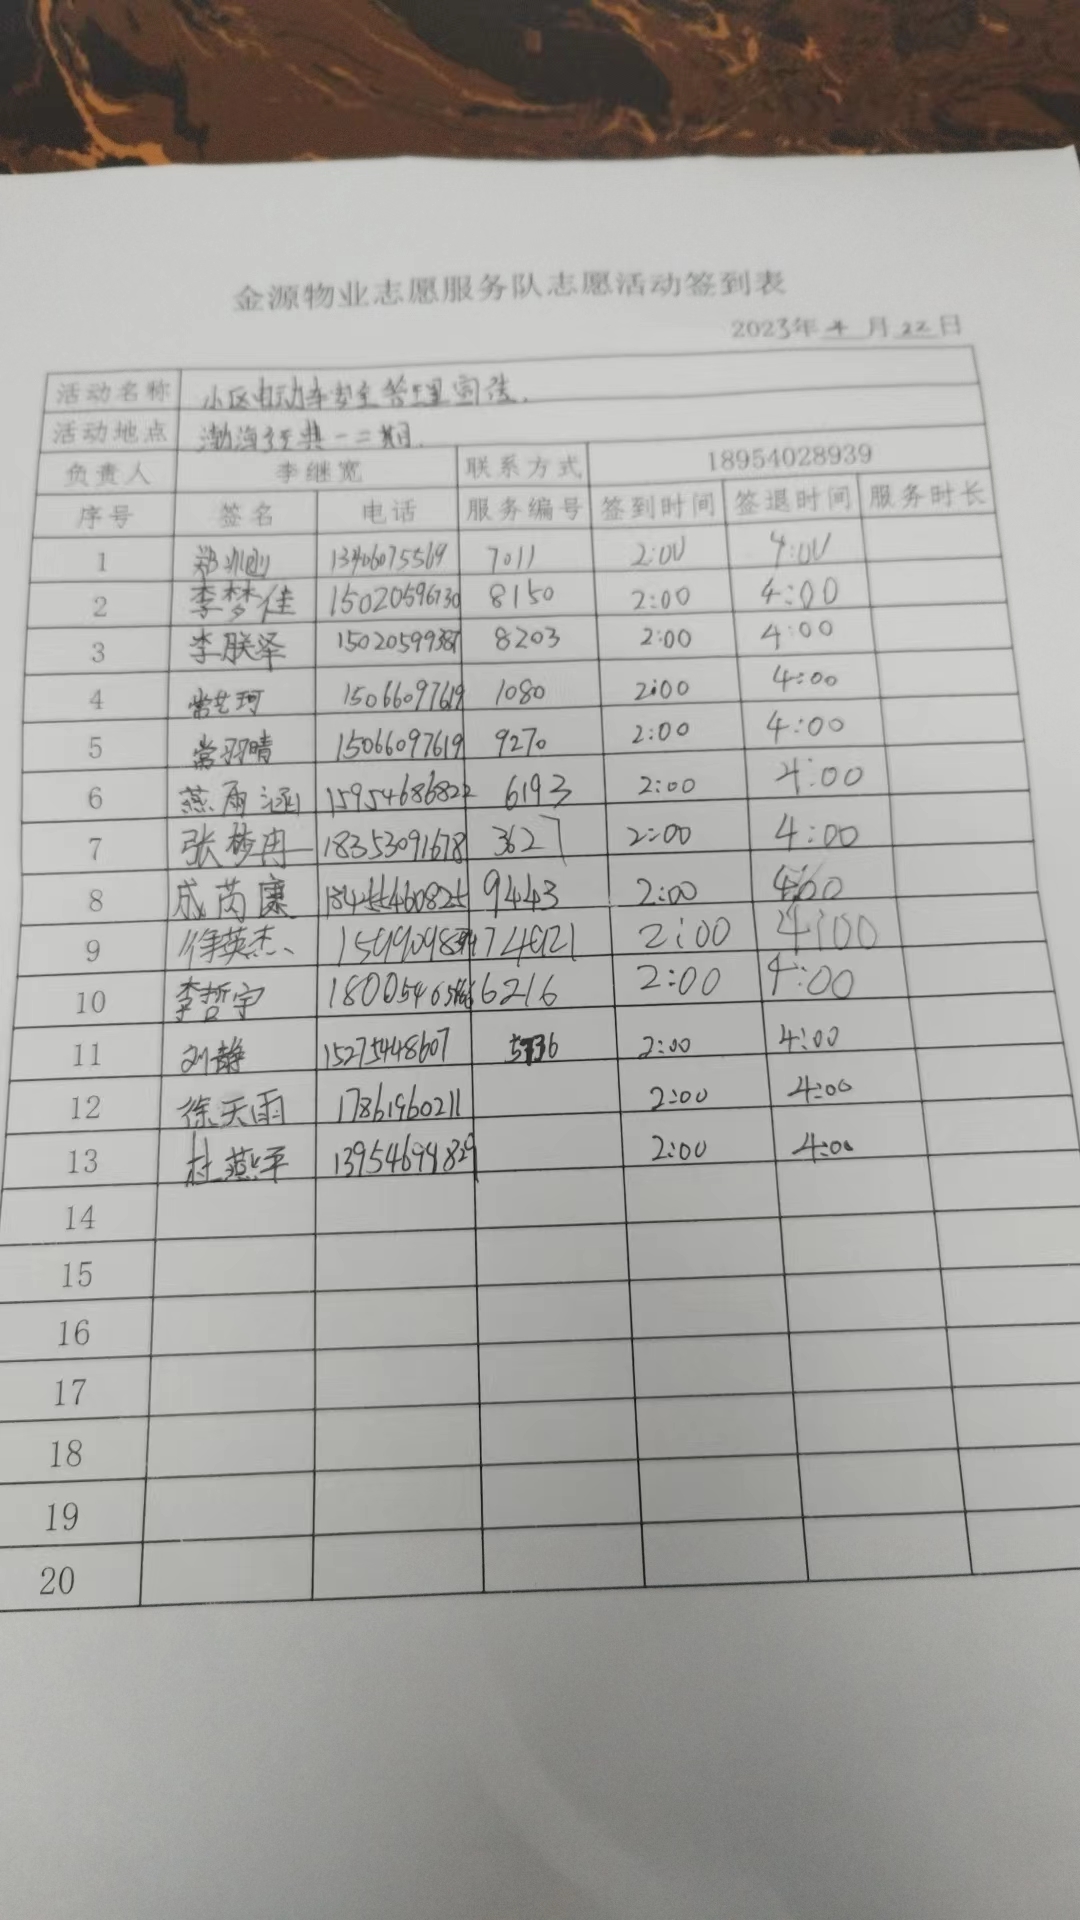 金源物业志愿服务队志愿活动签到表
2023年 4 月 22 日
活动名称 小区电动车安全管理宣传.
活动地点 渤海经典一二期.
负责人 李继宽 联系方式 18954028939
序号 签名 电话 服务编号 签到时间 签退时间 服务时长
1 郑 13406075569 7011 2:00 4:00
2 李梦佳 15020596730 8150 2:00 4:00
3 李朕泽 15020599387 8203 2:00 4:00
4 常艺珂 15066097619 1080 2:00 4:00
5 常羽晴 15066097619 9270 2:00 4:00
6 燕雨涵 15954686822 6193 2:00 4:00
7 张梦冉 18353091678 3627 2:00 4:00
8 成芮康 9443 2:00 4:00
9 徐英杰 2:00 4:00
10 李哲宇 6216 2:00 4:00
11 刘静 15275448607 2:00 4:00
12 徐天雨 17861960211 2:00 4:00
13 杜燕平 13954694829 2:00 4:00
14
15
16
17
18
19
20